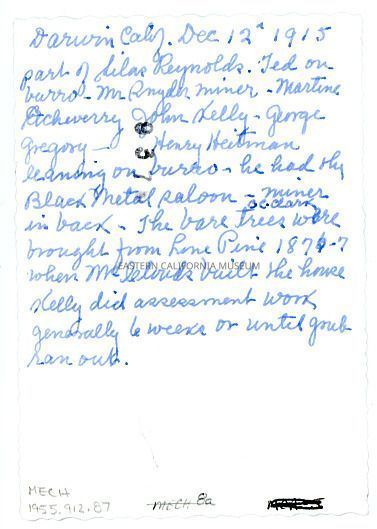 Darwin Calif. Dec 12" 1915
part of Silas Reynolds. Ted on
burro - Mr Snyder miner - Martine
Etcheverry John Kelly - George
Gregory - Henry Heitman
leaning on burro - he had the
Black Metal saloon - miner
in back - The bare trees were
brought from Lone Pine 1876-7
when Mr built the house
EASTERN CALIFORNIA MUSEUM
Kelly did assessment work
generally 6 weeks or until grub
ran out.
MECH
1955.912.87
MECH 8a